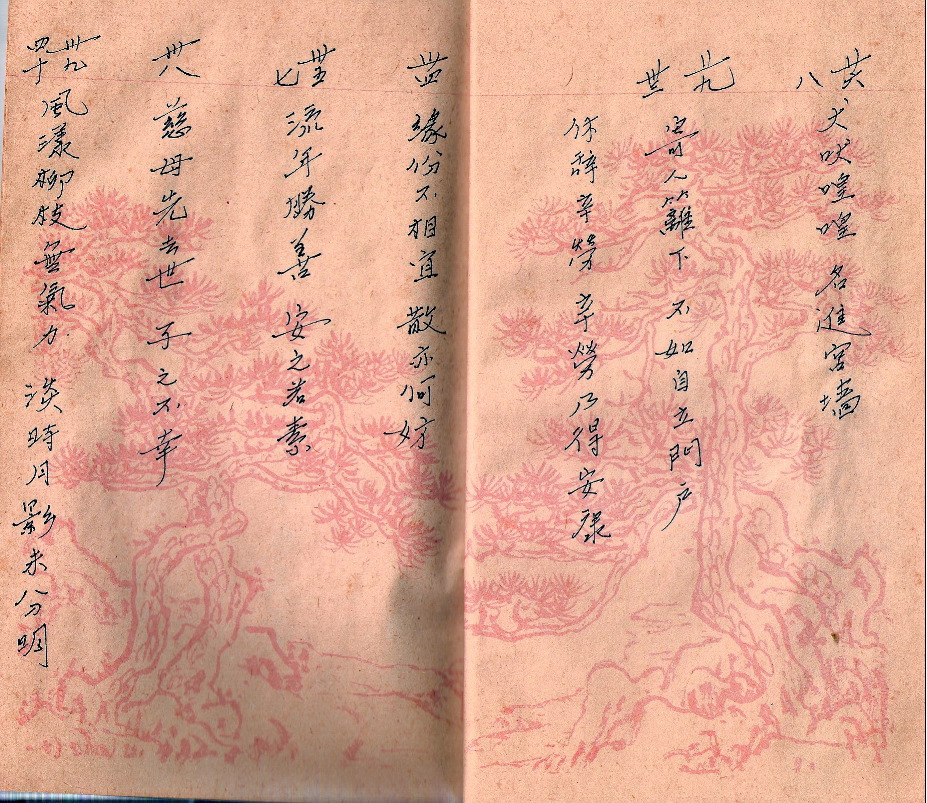 廿六
八
犬吠喤喤 名進宮墻
廿九
寄人篱下 不如自立門戶
卅
休辞辛勞 辛勞乃得安祿
卅四
緣份不相宜 散亦何妨
卅五
七
流年勝善 安之若素
卅八
慈母先去世 子之不幸
卅九
四十
風漾柳枝無氣力 淡時月影未分明